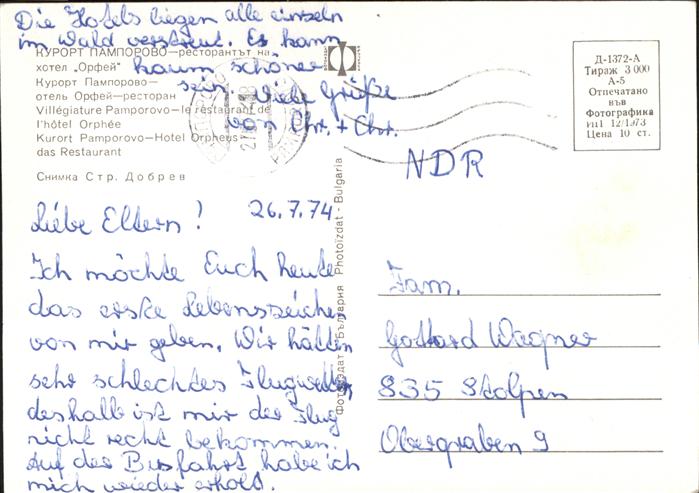 Die Hotels liegen alle einzeln
im Wald verstreut. Es kann
kaum schöner
sein. Viele Grüße
von Chr. + Chr.
КУРОРТ ПАМПОРОВО—ресторантът на
хотел „Орфей"
Курорт Пампорово—
отель Орфей—ресторан
Villégiature Pamporovo—le restaurant de
l'hôtel Orphée
Kurort Pamporovo—Hotel Orpheus
das Restaurant
Снимка Стр. Добрев
Liebe Eltern! 26.7.74
Ich möchte Euch heute
das erste Lebenszeichen
von mir geben. Wir hatten
sehr schlechtes Flugwetter,
deshalb ist mir der Flug
nicht recht bekommen.
Auf der Busfahrt habe ich
mich wieder erholt.
Фотоиздат - България Photoizdat - Bulgaria
Д-1372-А
Тираж 3 000
А-5
Отпечатано
във
Фотографика
ИП1 12/1973
Цена 10 ст.
NDR
Fam.
Gottard Wagner
835 Stolpen
Obergraben 9